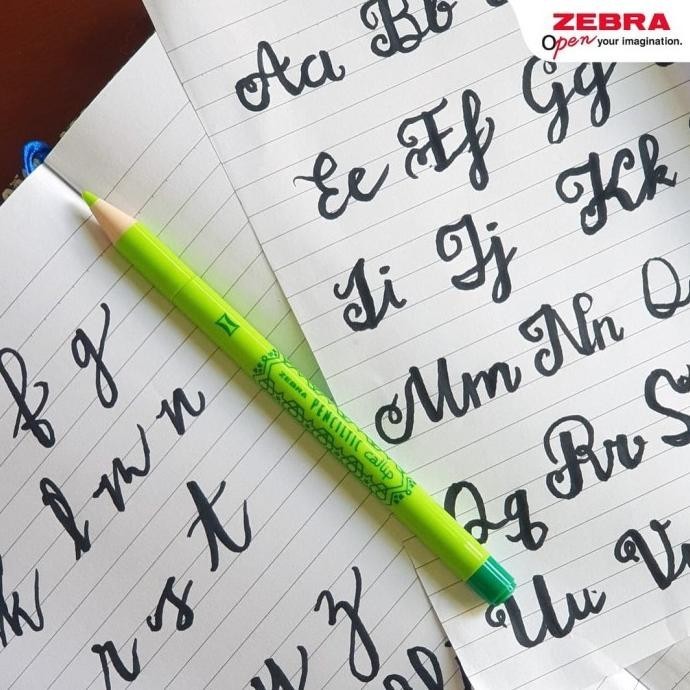 ZEBRA
Open your imagination.
Aa Bb
Ee Ff Gg
Ii Jj Kk
Mm Nn O
Qq Rr S
Uu Vv
ZEBRA PENCILTIC callip
f g
l m n
k r s t
y z